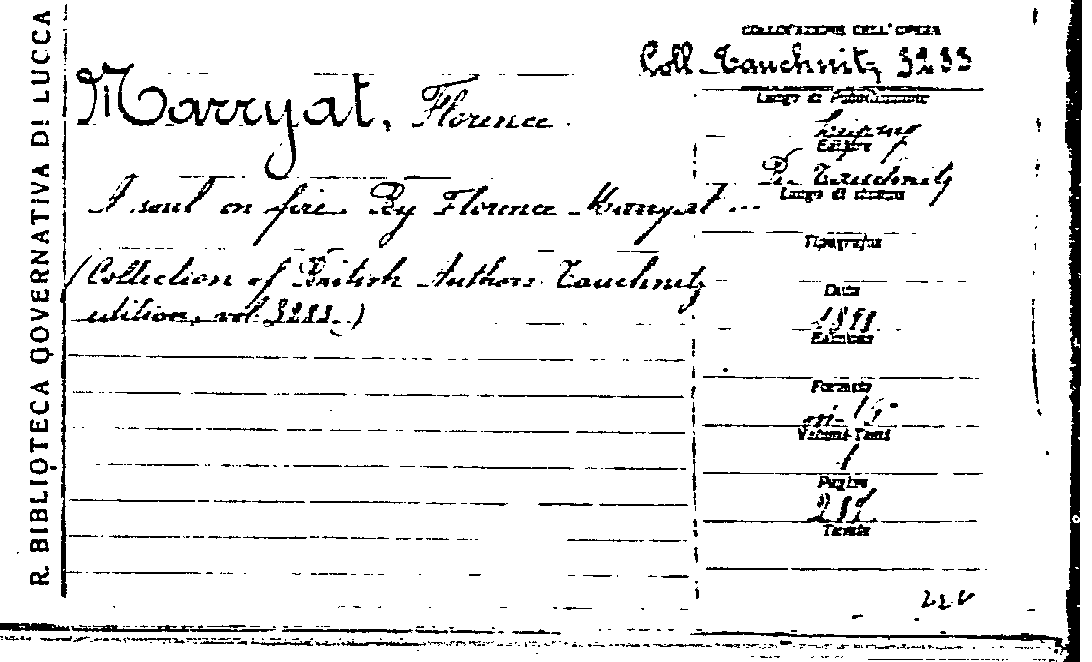 R. BIBLIOTECA GOVERNATIVA DI LUCCA
COLLOCAZIONE DELL'OPERA
Coll. Tauchnitz 3233
Marryat, Florence.
Luogo di Pubblicazione
Leipzig
Editore
B. Tauchnitz
A soul on fire. By Florence Marryat ...
Luogo di stampa
Tipografia
(Collection of British Authors Tauchnitz
edition, vol. 3233.)
Data
Edizione
Formato
in-16°
Volumi-Tomi
1
Pagine
Tavole